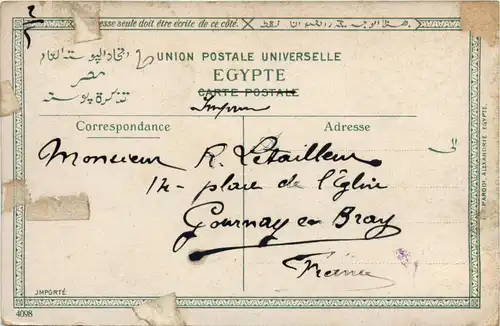 resse seule doit être écrite de ce côté.
UNION POSTALE UNIVERSELLE
اتحاد البوستة العام
EGYPTE
مصر
CARTE POSTALE
تذكرة بوستة
Correspondance
Adresse
Monsieur R. Letailleur
14 - place de l'Eglise
Gournay en Bray
France
IMPORTÉ
4098
PARODI ALEXANDRIE EGYPTE.